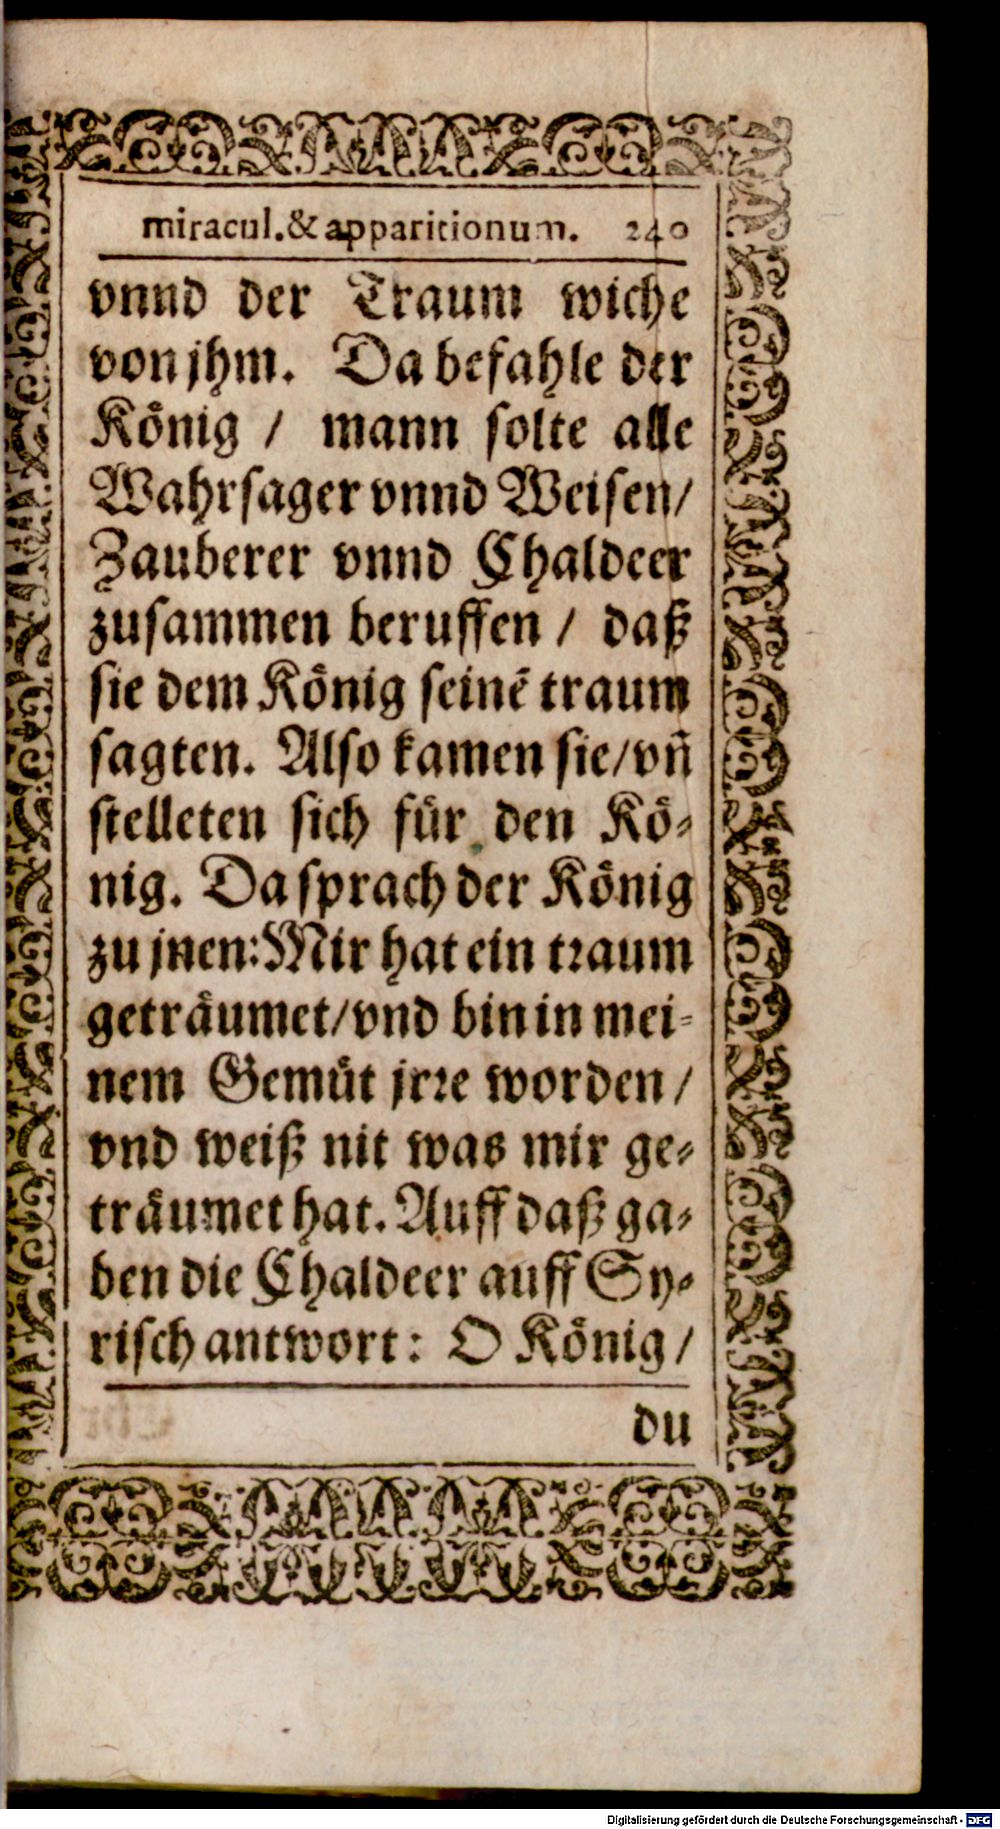 miracul.& apparitionum. 240
vnnd der Traum wiche
von jhm. Da befahle der
König / mann solte alle
Wahrsager vnnd Weisen/
Zauberer vnnd Chaldeer
zusammen beruffen / daß
sie dem König seinē traum
sagten. Also kamen sie/vñ
stelleten sich für den Kö-
nig. Da sprach der König
zu jnen: Mir hat ein traum
geträumet/vnd bin in mei-
nem Gemüt jrre worden /
vnd weiß nit was mir ge-
träumet hat. Auff daß ga-
ben die Chaldeer auff Sy-
risch antwort: O König /
du
Digitalisierung gefördert durch die Deutsche Forschungsgemeinschaft - DFG